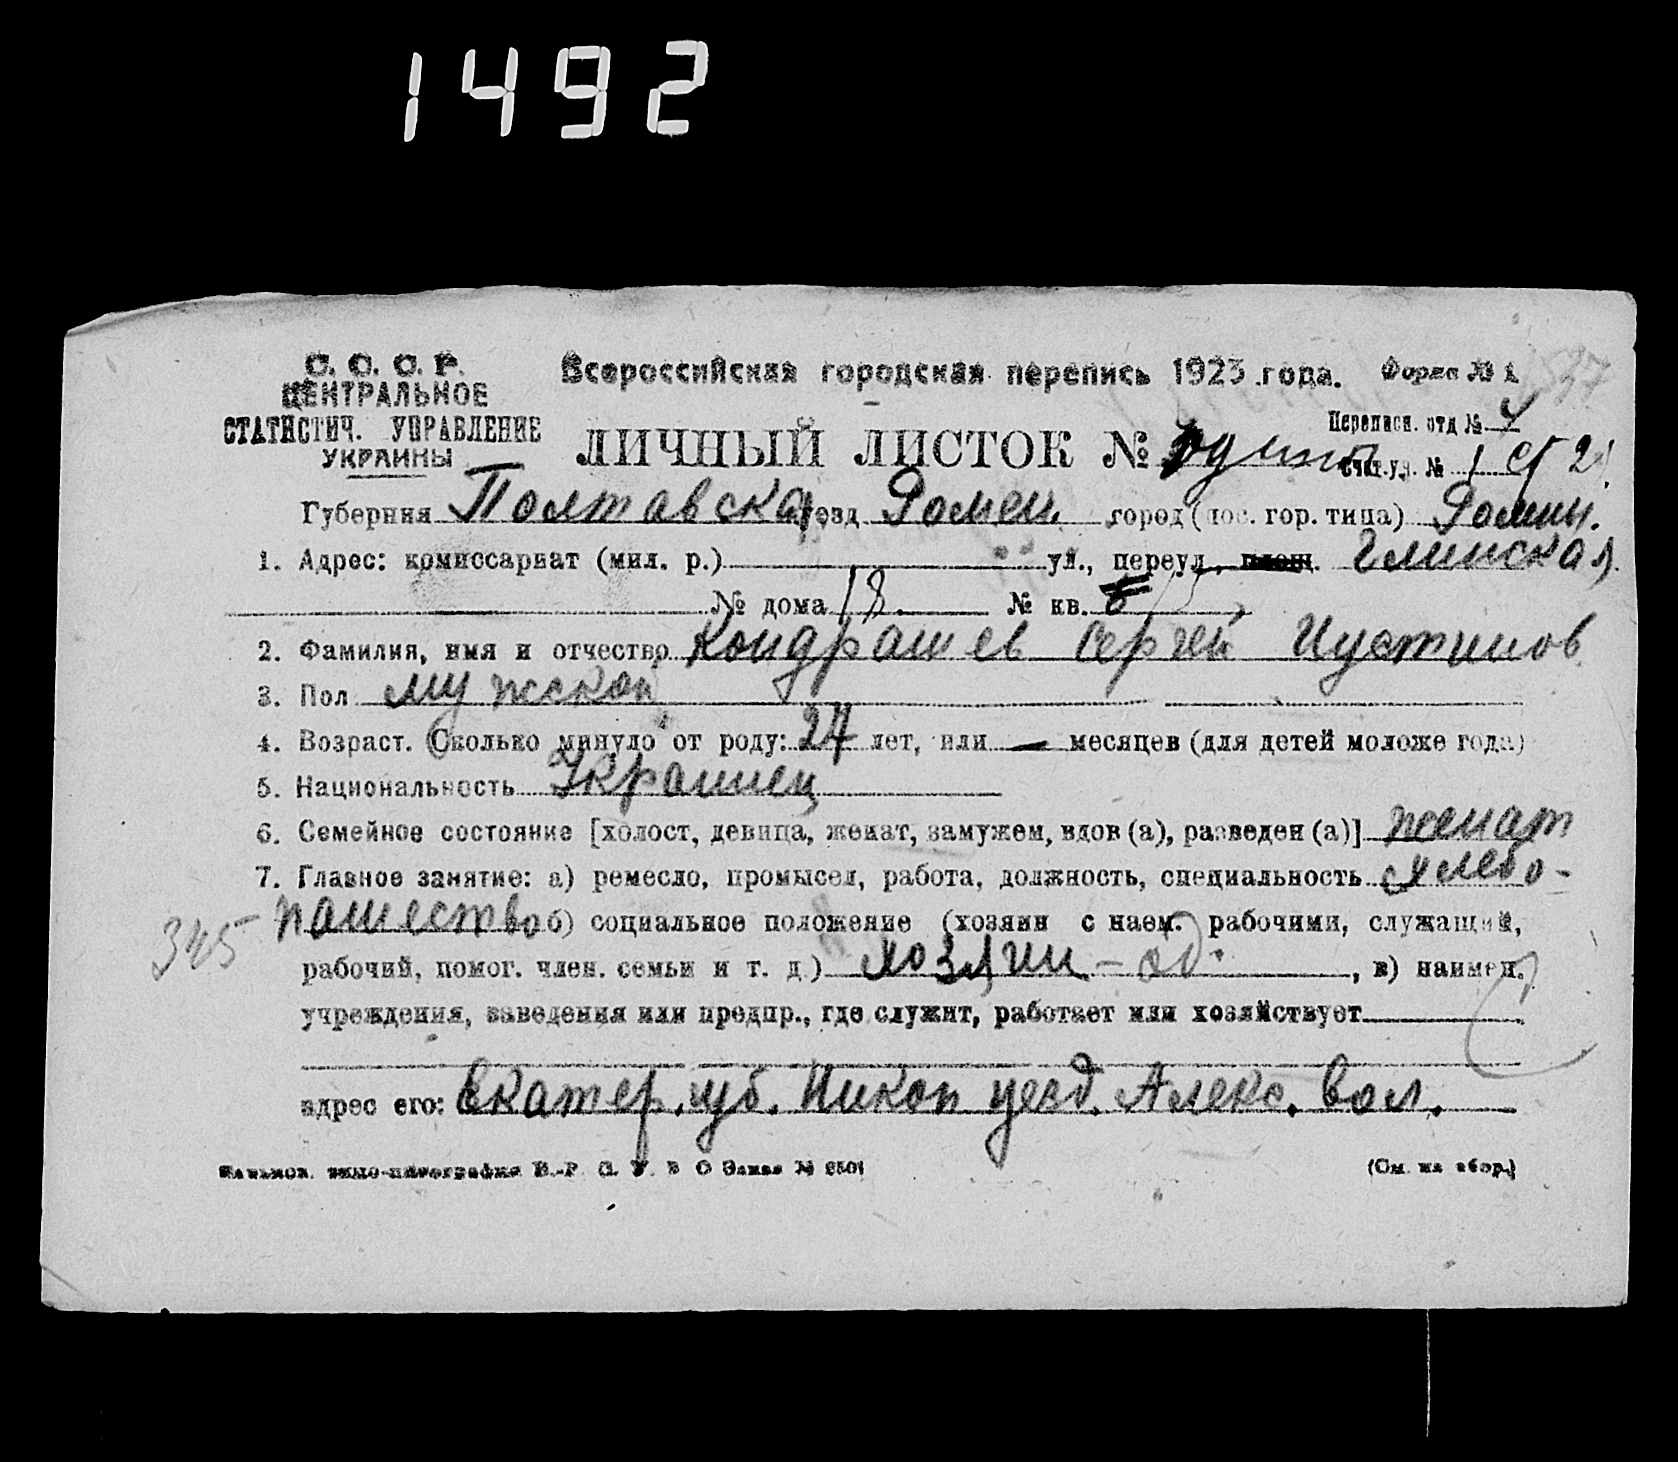 1492
С. С. С. Р.
ЦЕНТРАЛЬНОЕ
СТАТИСТИЧ. УПРАВЛЕНИЕ
УКРАИНЫ
Всероссийская городская перепись 1923 года. Форма № 1.
Переписн. отд № 4
ЛИЧНЫЙ ЛИСТОК № один Счетн. уч. № 1
Губерния Полтавская уезд Ромен. город (пос. гор. типа) Ромны.
1. Адрес: комиссариат (мил. р.) ул., переул., площ. Глинская
№ дома 18. № кв.
2. Фамилия, имя и отчество Кондрашев Сергей Иустинов
3. Пол мужской
4. Возраст. Сколько минуло от роду: 27 лет, или — месяцев (для детей моложе года)
5. Национальность Украинец
6. Семейное состояние [холост, девица, женат, замужем, вдов (а), разведен (а)] женат
7. Главное занятие: а) ремесло, промысел, работа, должность, специальность хлебо-
пашество б) социальное положение (хозяин с наем. рабочими, служащий,
345
рабочий, помог. член. семьи и т. д.) хозяин – од. , в) наимен.
учреждения, заведения или предпр., где служит, работает или хозяйствует
адрес его: Екатер. губ. Никоп уезд. Алекс. вол.
(См. на обор.)